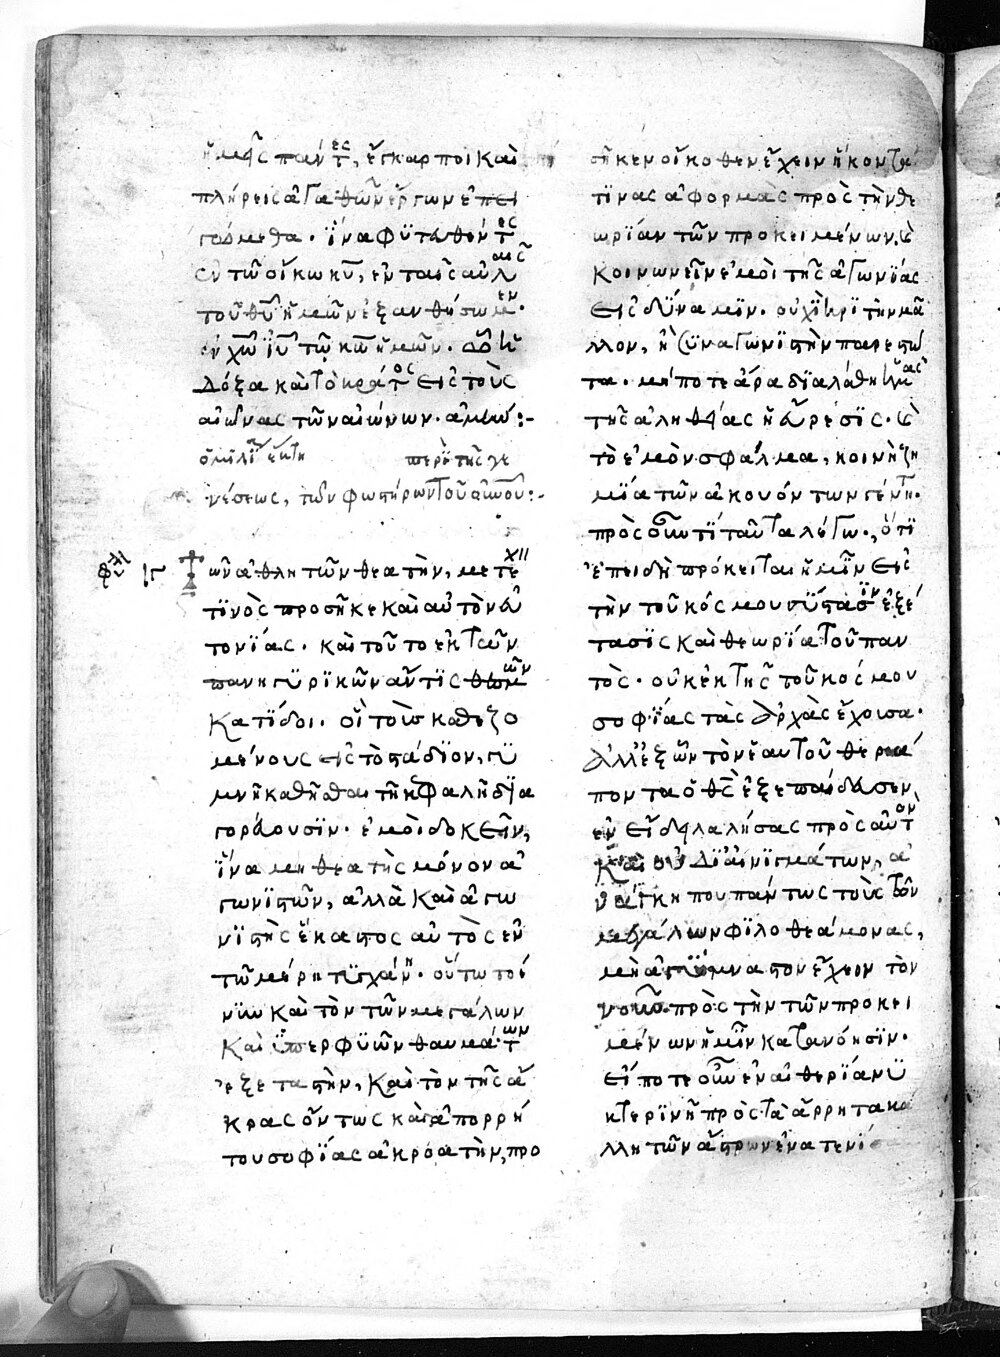 ἡμεῖς πάντες, ἔγκαρποι καὶ
πλήρεις ἀγαθῶν ἔργων ἐπει
γώμεθα. ἵνα φϋτευθέντες
ἐν τῶ οἴκω κυ, ἐν ταῖς αὐλαῖς
τοῦ θυ ἡμῶν ἐξανθήσωμεν.
ἐν χω ιυ τῶ κω ἡμῶν. ὧ ἡ
δόξα καὶ τὸ κράτος εἰς τοὺς
αἰῶνας τῶν αἰώνων. ἀμήν:-
ὁμιλί ἕκτη περὶ τῆς γε
νέσεως, τῶν φωστήρων τοῦ οὐνοῦ:-
XII
ιγ Τῶν ἀθλητῶν θεατὴν, μετέ
τϊνὸς προσῆκε καὶ αὐτὸν εὐ
τονίας. καὶ τοῦτο ἐκ τῶν
πανηγϋρϊκῶν ἄν τις θεσμῶν
κατΐδοι. οἳ τοὺς καθεζο
μένους εἰς τὸ στάδϊον, γϋ
μνῆ καθῆσθαι τῆ κεφαλῆ δϊα
γορεύουσϊν. ἐμοὶ δοκεῖν,
ἵνα μὴ θεατὴς μόνον ἀ
γωνϊστῶν, ἀλλὰ καὶ ἀγω
νϊστὴς ἕκαστος αὐτὸς ἐν
τῶ μέρει τϋγχάνη. οὕτω τοί
νϋν καὶ τὸν τῶν μεγάλων
καὶ ὑπερφϋῶν θαυμάτων
ἐξεταστὴν, καὶ τὸν τῆς ἄ
κρας ὄντως καὶ ἀπορρή
του σοφΐας ἀκροατὴν, προ
σῆκεν οἴκοθεν ἔχειν ἥκοντά
τϊνας ἀφορμὰς πρὸς τὴν θε
ωρΐαν τῶν προκειμένων, καὶ
κοινωνεῖν ἐμοὶ τῆς ἀγωνΐας
εἰς δύναμϊν. οὐχῒ κριτὴν μᾶ
λλον, ἢ σϋναγωνϊστὴν παρεστῶ
τα. μήποτε ἄρα δϊαλάθη ἡμᾶς
τῆς ἀληθείας ἡ εὕρεσϊς. καὶ
τὸ ἐμὸν σφάλμα, κοινὴ ζη
μΐα τῶν ἀκουόντων γένηται.
πρὸς οὖν τΐ ταῦτα λέγω., ὅτϊ
ἐπειδὴ πρόκειται ἡμῖν εἰς
τὴν τοῦ κόσμου σύστασϊν ἐξέ
τασϊς καὶ θεωρΐα τοῦ παν
τὸς. οὐκ ἐκ τῆς τοῦ κόσμου
σοφΐας τὰς ἀρχὰς ἔχουσα.
ἀλλ' ἐξ ὧν τὸν ἑαυτοῦ θερά
ποντα ὁ θς ἐξεπαίδευσεν,
ἐν εἴδει λαλήσας πρὸς αὐτὸν
καὶ οὐ δϊ' αἰνϊγμάτων, ἀ
νάγκη που πάντως τοὺς τῶν
μεγάλων φϊλοθεάμονας,
μὴ ἀγύμναστον ἔχειν τὸν
νοῦν πρὸς τὴν τῶν προκει
μένων ἡμῖν κατανόησϊν.
εἴ ποτε οὖν ἐν αἰθερΐα νϋ
κτερϊνῆ πρὸς τὰ ἄρρητα κά
λλη τῶν ἄστρων ἐνατενί